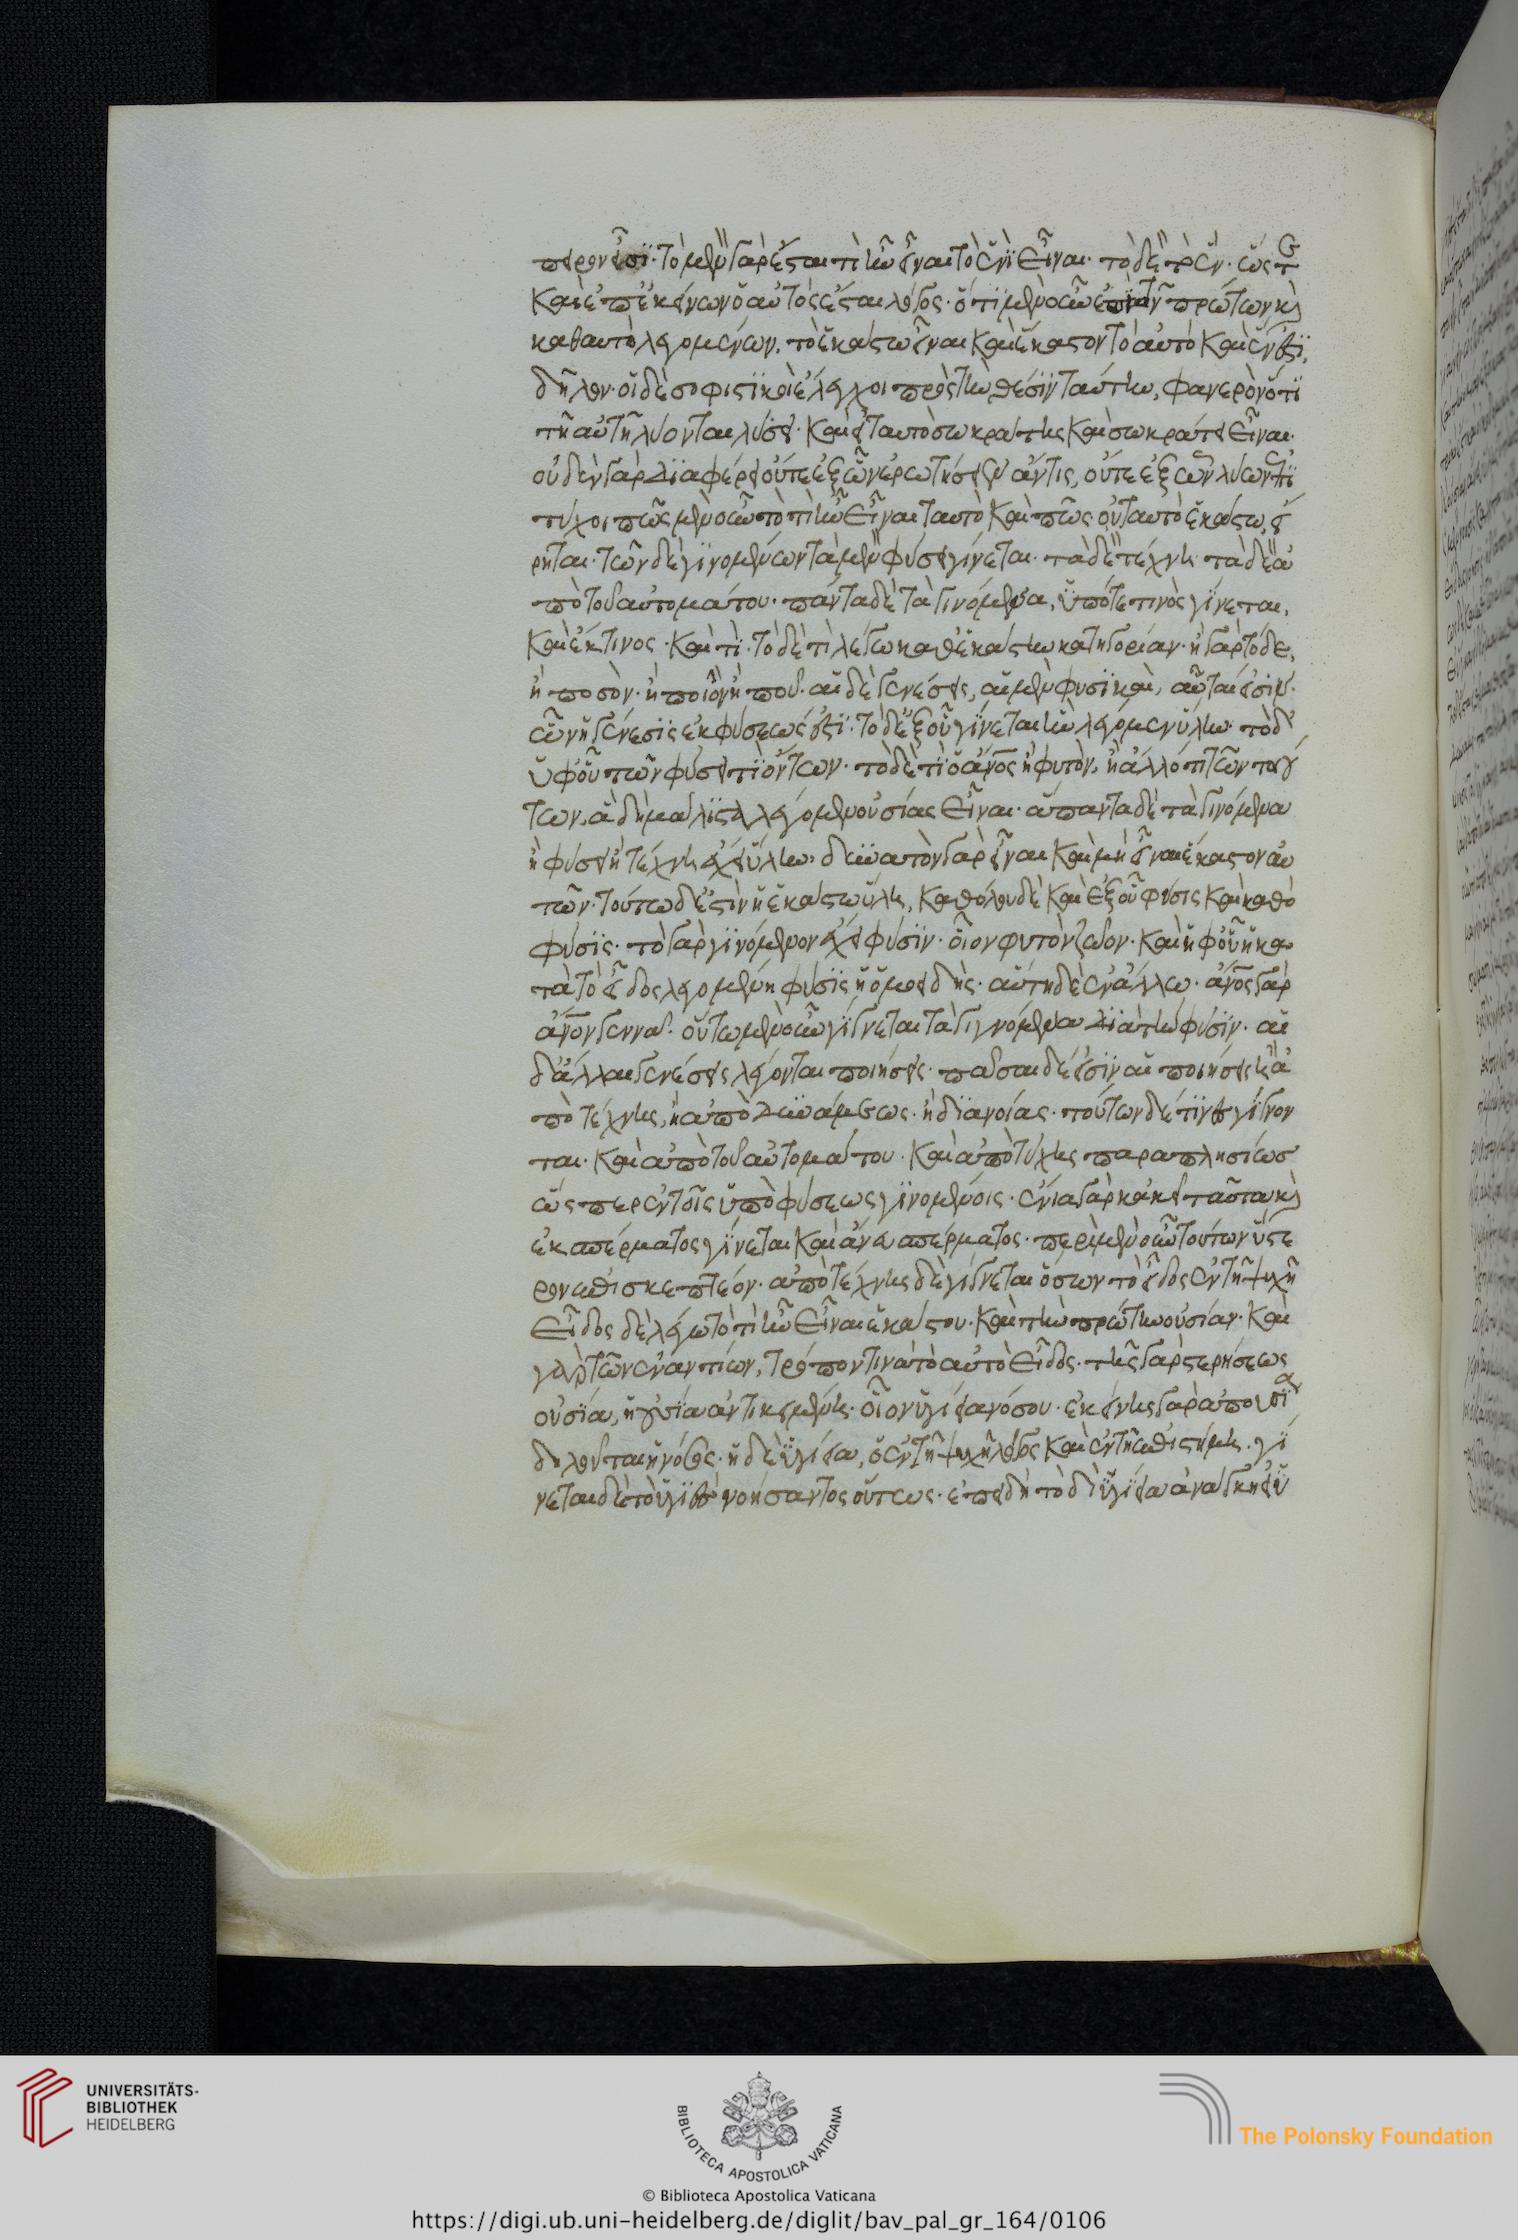 περον εἰσί· τὸ μὲν γὰρ ἔσται τί ἦν εἶναι τὸ ἑνὶ εἶναι· τὸ δὲ τὸ ἕν· ὥστε
καὶ ἐπ' ἐκείνων ὁ αὐτὸς ἔσται λόγος· ὅτι μὲν οὖν ἐπὶ τῶν πρώτων καὶ
καθ' αὑτὸ λεγομένων, τὸ ἑκάστω εἶναι καὶ ἕκαστον τὸ αὐτὸ καὶ ἕν ἐστι,
δῆλον· οἱ δὲ σοφιστικοὶ ἔλεγχοι πρὸς τὴν θέσιν ταύτην, φανερὸν ὅτι
τῇ αὐτῇ λύονται λύσει· καὶ εἰ ταυτὸ σωκράτης καὶ σωκράτει εἶναι·
οὐδὲν γὰρ διαφέρει οὔτε ἐξ ὧν ἐρωτήσειεν ἄν τις, οὔτε ἐξ ὧν λύων ἐπι
τύχοι πῶς μὲν οὖν τὸ τί ἦν εἶναι ταυτὸ καὶ πῶς οὐ ταυτὸ ἑκάστω, εἴ
ρηται· τῶν δὲ γινομένων τὰ μὲν φύσει γίνεται· τὰ δὲ τέχνῃ· τὰ δὲ ἀ
πὸ τοῦ αὐτομάτου· πάντα δὲ τὰ γινόμενα, ὑπό τε τινὸς γίνεται,
καὶ ἔκ τινος· καὶ τὶ· τὸ δὲ τὶ λέγω καθ' ἑκάστην κατηγορίαν· ἢ γὰρ τόδε,
ἢ ποσὸν· ἢ ποιὸν ἢ ποῦ· αἱ δὲ γενέσεις, αἱ μὲν φυσικαὶ, αὗταί εἰσιν·
ὧν ἡ γένεσις ἐκ φύσεώς ἐστι· τὸ δὲ ἐξ οὗ γίνεται ἣν λέγομεν ὕλην· τὸ δ'
ὑφ' οὗ τῶν φύσει τὶ ὄντων· τὸ δὲ τὶ ὁ ἄνος ἢ φυτὸν, ἢ ἄλλό τι τῶν τοιού
των, ἃ δὴ μάλιστα λέγομεν οὐσίας εἶναι· ἅπαντα δὲ τὰ γινόμενα
ἢ φύσει ἢ τέχνῃ ἔχει ὕλην· δυνατὸν γὰρ εἶναι καὶ μὴ εἶναι ἕκαστον αὐ
τῶν· τοῦτο δέ ἐστὶν ἡ ἑκάστω ὕλη, καθόλου δὲ καὶ ἐξ οὗ φύσις καὶ καθό
φύσις· τὸ γὰρ γινόμενον ἔχει φύσιν· οἷον φυτὸν ζῶον· καὶ ὑφ' οὗ ἡ κα
τὰ τὸ εἶδος λεγομένη φύσις ἡ ὁμοειδής· αὕτη δὲ ἐν ἄλλω· ἄνος γὰρ
ἄνον γεννᾷ· οὕτω μὲν οὖν γίγνεται τὰ γιγνόμενα διὰ τὴν φύσιν· αἱ
δ' ἄλλαι γενέσεις λέγονται ποιήσεις· πᾶσαι δέ εἰσὶν αἱ ποιήσεις ἢ ἀ
πὸ τέχνης, ἢ ἀπὸ δυνάμεως· ἢ διανοίας· τούτων δέ τινες γίγνον
ται· καὶ ἀπὸ τοῦ αὐτομάτου· καὶ ἀπὸ τύχης παραπλησίως
ὥσπερ ἐν τοῖς ὑπὸ φύσεως γινομένοις· ἔνια γὰρ κἀκεῖ ταὐτὰ καὶ
ἐκ σπέρματος γίνεται καὶ ἄνευ σπέρματος· περὶ μὲν οὖν τούτων ὕστε
ρον ἐπισκεπτέον· ἀπὸ τέχνης δὲ γίγνεται ὅσων τὸ εἶδος ἐν τῇ ψυχῇ
εἶδος δὲ λέγω τὸ τί ἦν εἶναι ἑκάστου· καὶ τὴν πρώτην οὐσίαν· καὶ
γὰρ τῶν ἐναντίων, τρόπον τινὰ τὸ αὐτὸ εἶδος· τῆς γὰρ στερήσεως
οὐσία, ἡ οὐσία ἀντικειμένη· οἷον ὑγίεια νόσου· ἐκείνης γὰρ ἀπουσία
δηλοῦται ἡ νόσος· ἡ δὲ ὑγίεια, ὁ ἐν τῇ ψυχῇ λόγος καὶ ἐν τῇ ἐπιστήμῃ· γί
νεται δὲ τὸ ὑγιὲς νοήσαντος οὕτως· ἐπειδὴ τὸ δὶ ὑγίεια ἀνάγκη εἰ ὑ
UNIVERSITÄTS-
BIBLIOTHEK
HEIDELBERG
BIBLIOTECA APOSTOLICA VATICANA
The Polonsky Foundation
© Biblioteca Apostolica Vaticana
https://digi.ub.uni-heidelberg.de/diglit/bav_pal_gr_164/0106